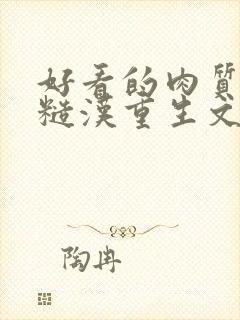 好看的肉質
糙漢重生文
陶冉